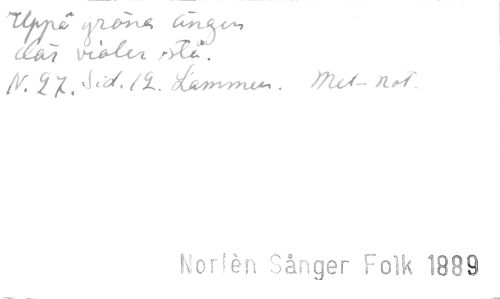 Uppå gröna ängen
där violer stå.
N. 27. Sid. 12. Lammen. Mel- not.
Norlèn Sånger Folk 1889